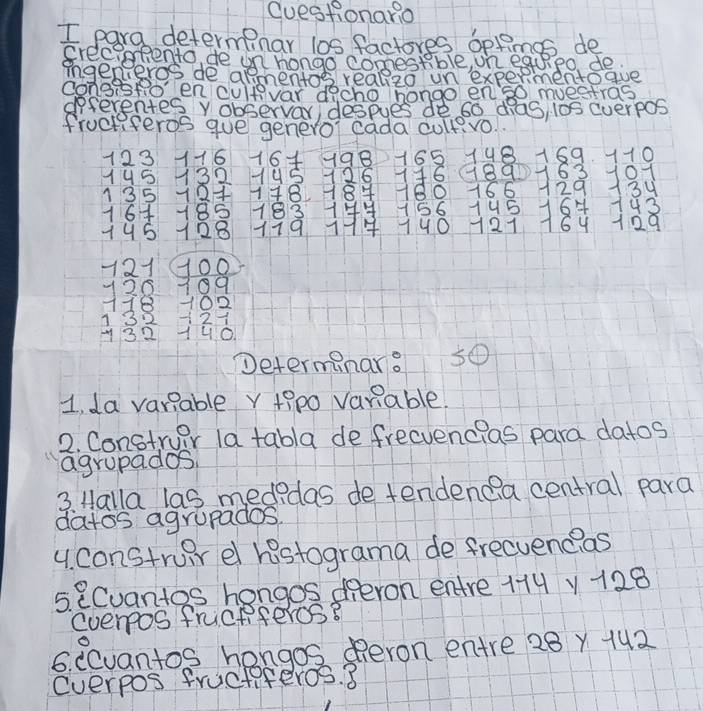 Cuestionario
I para determinar los factores óptimos de
crecimiento de un hongo comestible, un equipo de
ingenieros de alimentos realizo un experimento que
consistio en cultivar dicho hongo en 50 muestras
diferentes y observar, despues de 60 días, los cuerpos
fructiferos que genero cada cultivo..
123 116 167 198 165 148 169 110
145 132 145 126 116 189 163 101
135 127 178 187 180 166 129 134
167 185 183 177 156 145 167 143
145 128 119 117 140 121 164 129
121 100
120 109
118 102
132 121
132 140
Determinar: 50
1. La variable y tipo variable.
2. Construir la tabla de frecuencias para datos
agrupados.
3. Halla las medidas de tendencia central para
datos agrupados.
4. construir el histograma de frecuencias
5. ¿Cuantos hongos dieron entre 114 y 128
cuerpos fructiferos?
6. ¿Cuantos hongos dieron entre 28 y 142
cuerpos fructiferos.?